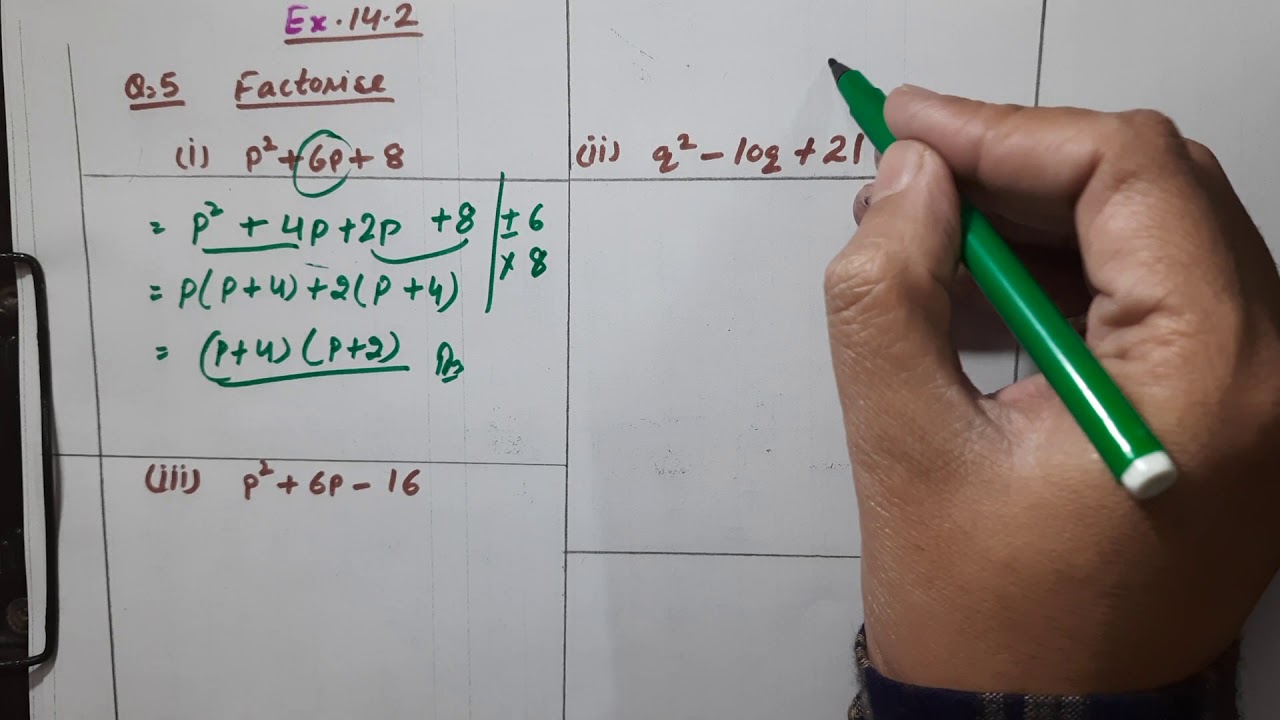 Ex. 14.2
Q.5 Factorise
(i) p² + 6p + 8
= p² + 4p + 2p + 8
± 6
× 8
= p(p+4) + 2(p+4)
= (p+4) (p+2) Ans
(ii) q² - 10q + 21
(iii) p² + 6p - 16